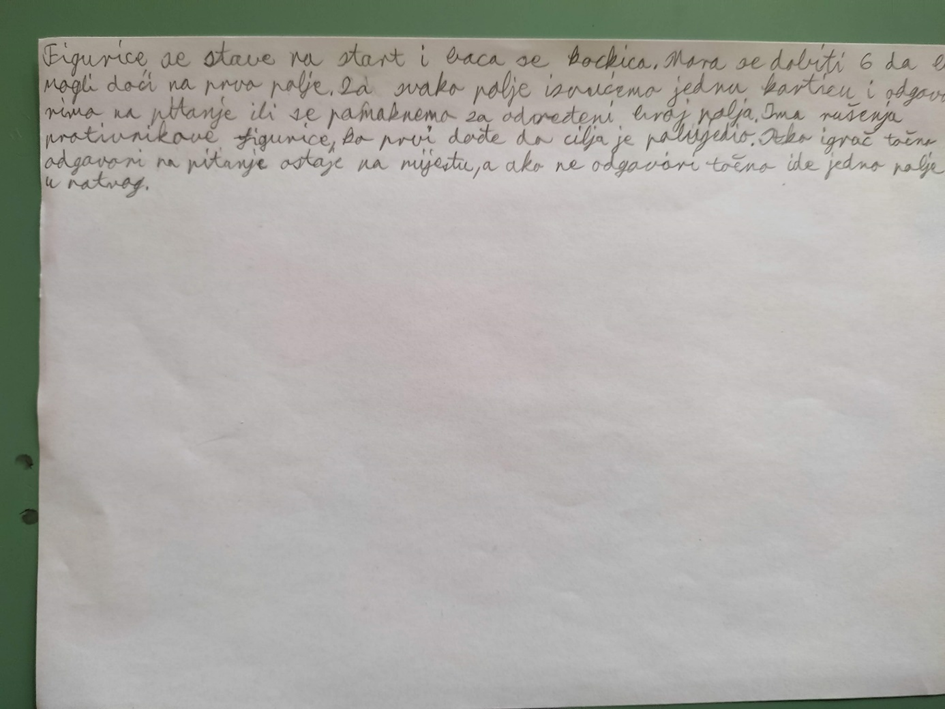 Figurice se stave na start i baca se kockica. Mora se dobiti 6 da b
mogli doći na prvo polje. Za svako polje izvučemo jednu karticu i odgova
rimo na pitanje ili se pomaknemo za određeni broj polja. Ima rušenja
protivnikove figurice, ko prvi dođe do cilja je pobijedio. Ako igrač točno
odgovori na pitanje ostaje na mijestu, a ako ne odgovori točno ide jedno polje
u natrag.